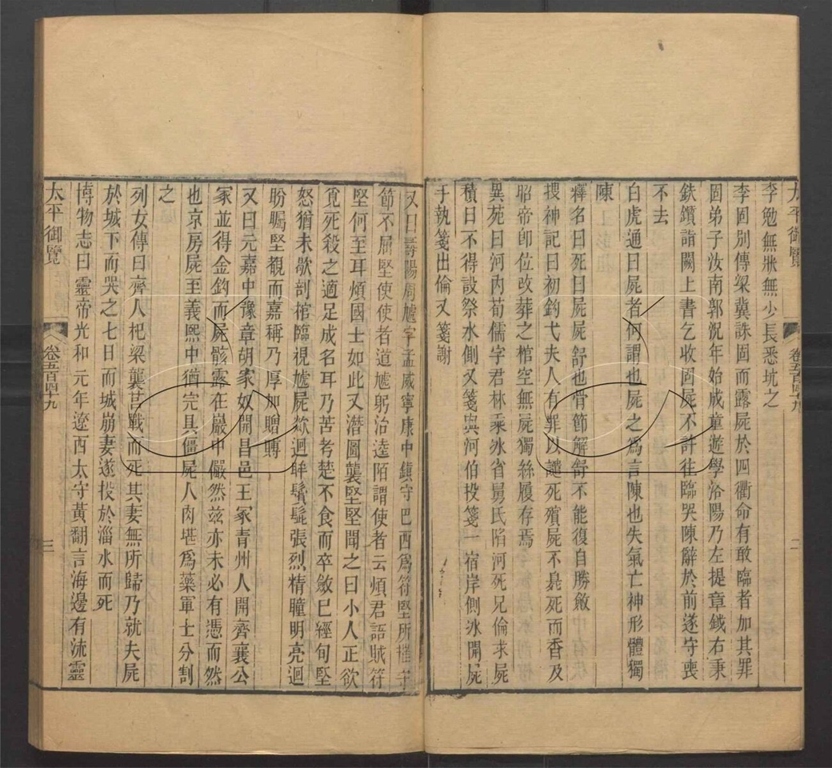 太平御覽
卷五百四十九
二
李勉無狀無少長悉坑之
李固別傳梁冀誅固而露屍於四衢命有敢臨者加其罪
固弟子汝南郭況年始成童遊學洛陽乃左提章鉞右秉
鈇鑕詣闕上書乞收固屍不許往臨哭陳辭於前遂守喪
不去
白虎通曰屍者何謂也屍之爲言陳也失氣亡神形體獨
陳
釋名曰死曰屍屍舒也骨節解舒不能復自勝斂
搜神記曰初鈎弋夫人有罪以譴死殯屍不臭死而香及
昭帝卽位改葬之棺空無屍獨絲履存焉
異苑曰河內荀儒字君林乘冰省舅氏陷河死兄倫求屍
積日不得設祭水側又箋與河伯投箋一宿岸側冰開屍
手執箋出倫又箋謝
又曰尋陽周虓字孟威寧康中鎮守巴西爲符堅所擒守
節不屈堅使使者道虓躬治逵陌謂使者云煩君語賊符
堅何至耳煩國士如此又潛圖襲堅堅聞之曰小人正欲
覓死殺之適足成名耳乃苦考楚不食而卒斂巳經旬堅
怒猶未歇剖棺臨視虓屍欻迴眸鬢髭張烈精瞳明亮迴
盼矚堅覩而嘉稱乃厚加贈賻
又曰元嘉中豫章胡家奴開昌邑王冢青州人開齊襄公
冢並得金鈎而屍骸露在巖中儼然茲亦未必有憑而然
也京房屍至義熙中猶完具僵屍人肉堪爲藥軍士分割
之
列女傳曰齊人杞梁襲莒戰而死其妻無所歸乃就夫屍
於城下而哭之七日而城崩妻遂投於淄水而死
博物志曰靈帝光和元年遼西太守黃翻言海邊有流靈
太平御覽
卷五百四十九
三